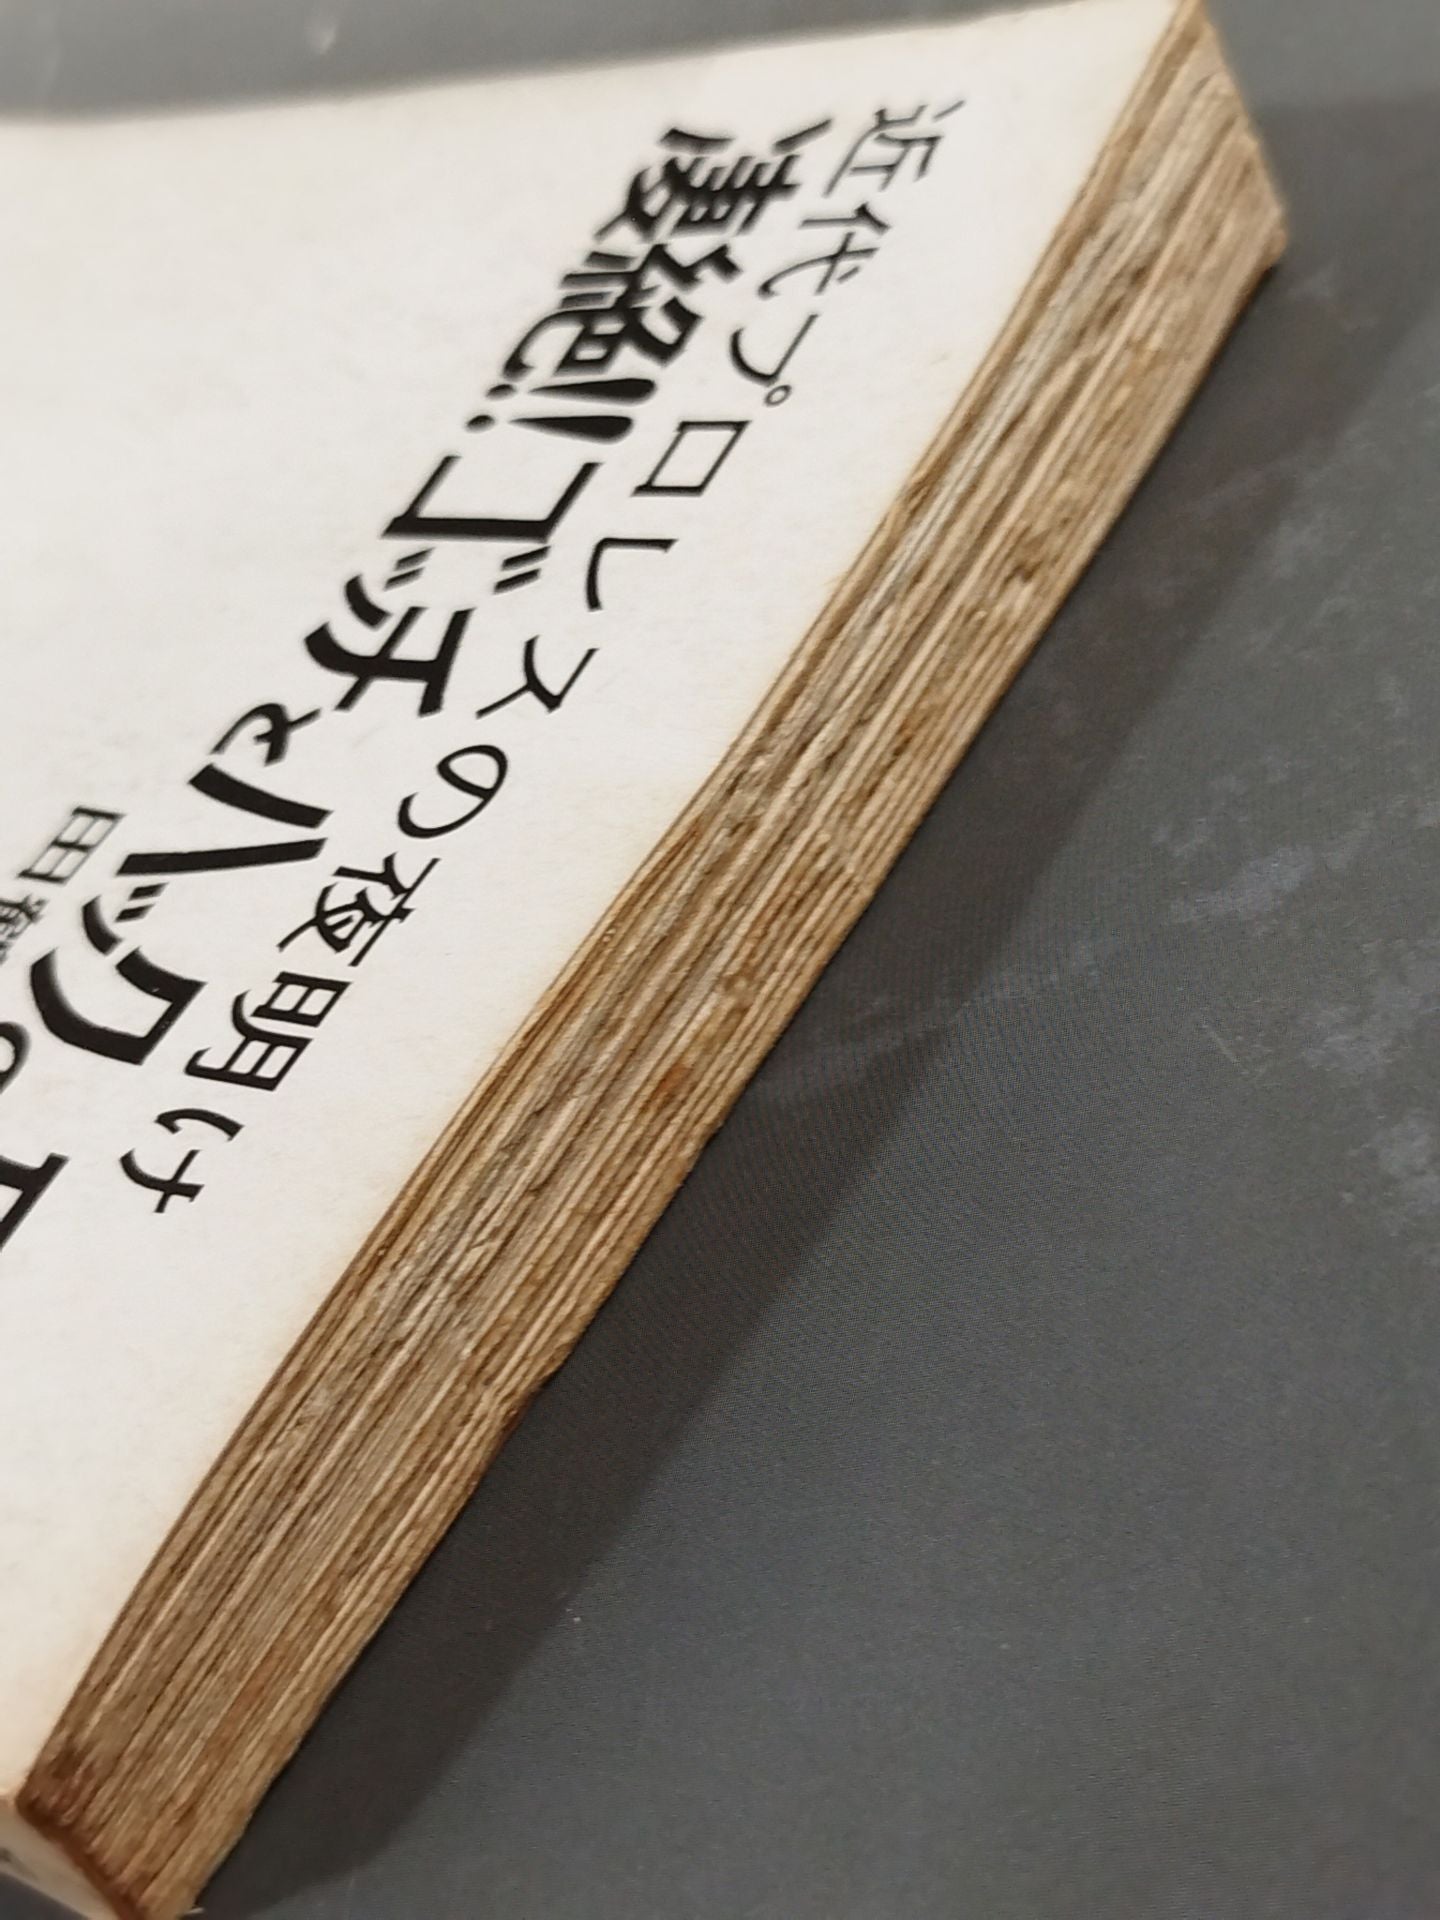 近代プロレスの夜明け
凄絶!!ゴッチとハック
田鶴